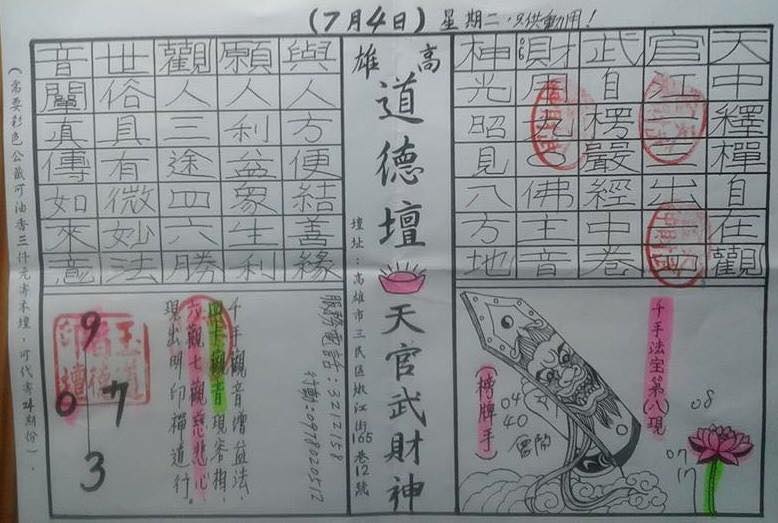 (7月4日)星期二,只供動用!
天中釋禪自在觀
官江一三出
武自楞嚴經中卷
財用九佛主音
神光昭見八方地
高雄
道德壇
天官武財神
壇址:高雄市三民區嫩江街165巷12號
服務電話:3212158
行動:0978020512
與人方便結善緣
願人利益眾生利
觀人三途四六勝
世俗具有微妙法
音闡真傳如來意
千手法宝第八現
(榜牌手)
04
40
08
07
17
千手觀音增益法,
四十觀音現客指,
六觀七觀慈悲心
現出明印禪道行。
9
0 7
3
(需要彩色公籤可油香三仟元寄本壇,可代寄24期份)。